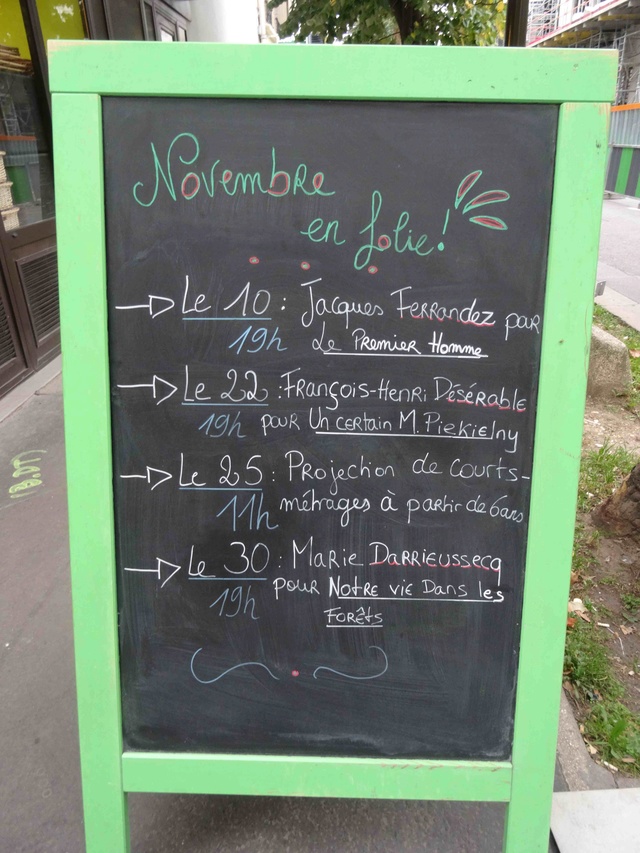 Novembre
en folie!
Le 10 : Jacques Ferrandez par
19h Le Premier Homme
Le 22 : François-Henri Désérable
19h pour Un certain M. Piekielny
Le 25 : Projection de courts-
11h métrages à partir de 6 ans
Le 30 : Marie Darrieussecq
19h pour Notre vie Dans les
Forêts